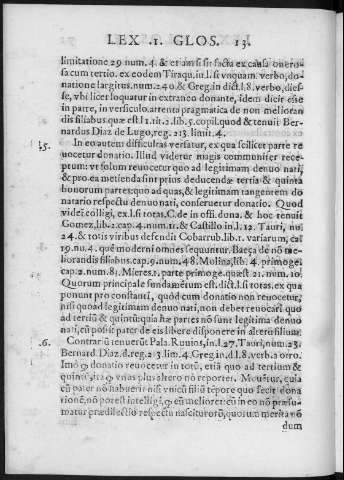 LEX .1. GLOS. 13.
limitatione 29 num. 4. & etiam si sit facta ex causa onero-
sa cum tertio. ex eodem Tiraqu. in.l. si vnquam. verbo, do-
natione largitus. num. 240 & Greg. in dict. l. 8. verbo, dies-
se, vbi licet loquatur in extraneo donante, idem dicit esse
in patre, in versiculo. attenta pragmatica de non melioran
dis filiabus quæ est l 1. tit. 2. lib. 5. copil. quod & tenuit Ber-
nardus Diaz de Lugo, reg. 213. limit. 4.
15. In eo autem difficultas versatur, ex qua scilicet parte re
uocetur donatio. Illud videtur magis communiter rece-
ptum: vt solum reuocetur quo ad legitimam denuo nati,
& pro ea metienda sint prius deducendæ tertia & quinta
bonorum partes: quo ad quas, & legitimam tangentem do
natario respectu denuo nati, conseruetur donatio. Quod
videt colligi, ex. l. si totas. C. de in offi. dona. & hoc tenuit
Gomez, lib. 2. cap. 4. num. 11. & Castillo in. l. 12. Tauri, nu.
24. & totis viribus defendit Cobarrub. lib. 1. variarum, cal
19. nu. 4. quẽ moderni omnes sequuntur. Baeça de nõ me-
liorandis filiabus. cap. 9. num. 48. Molina, lib. 4. primoge.
cap. 2. num. 81. Mieres. 1. parte primoge. quæst. 21. num. 10.
Quorum principale fundamẽtum est. dict. l. si totas. ex qua
ponunt pro constanti, quòd cum donatio non reuocetur,
nisi quoad legitimam denuo nati, non debet reuocari quo
ad tertiũ & quintũ: quia hæ partes nõ sunt legitima denuo
nati, cũ possit pater de eis liberè disponere in alterũ filium.
16. Contrariũ tenuerũt Pala. Ruuios, in. l. 27. Tauri, num. 23.
Bernard. Diaz. d. reg. 213. lim. 4. Greg. in. d. l. 8. verb. a otro.
Imò donatio reuocetur in totũ, etiã quo ad tertium &
quintũ, ita vnus plus altero nõ reportet. Mouẽtur, quia
cũ pater nõ habuerit nisi vnicũ filiũ tẽpore quo fecit dona
tionẽ, nõ potest intelligi, eũ meliorer: cũ in eo nõ præsu-
matur prædilectio respectu nasciturorũ, quorum merita nõ
dum